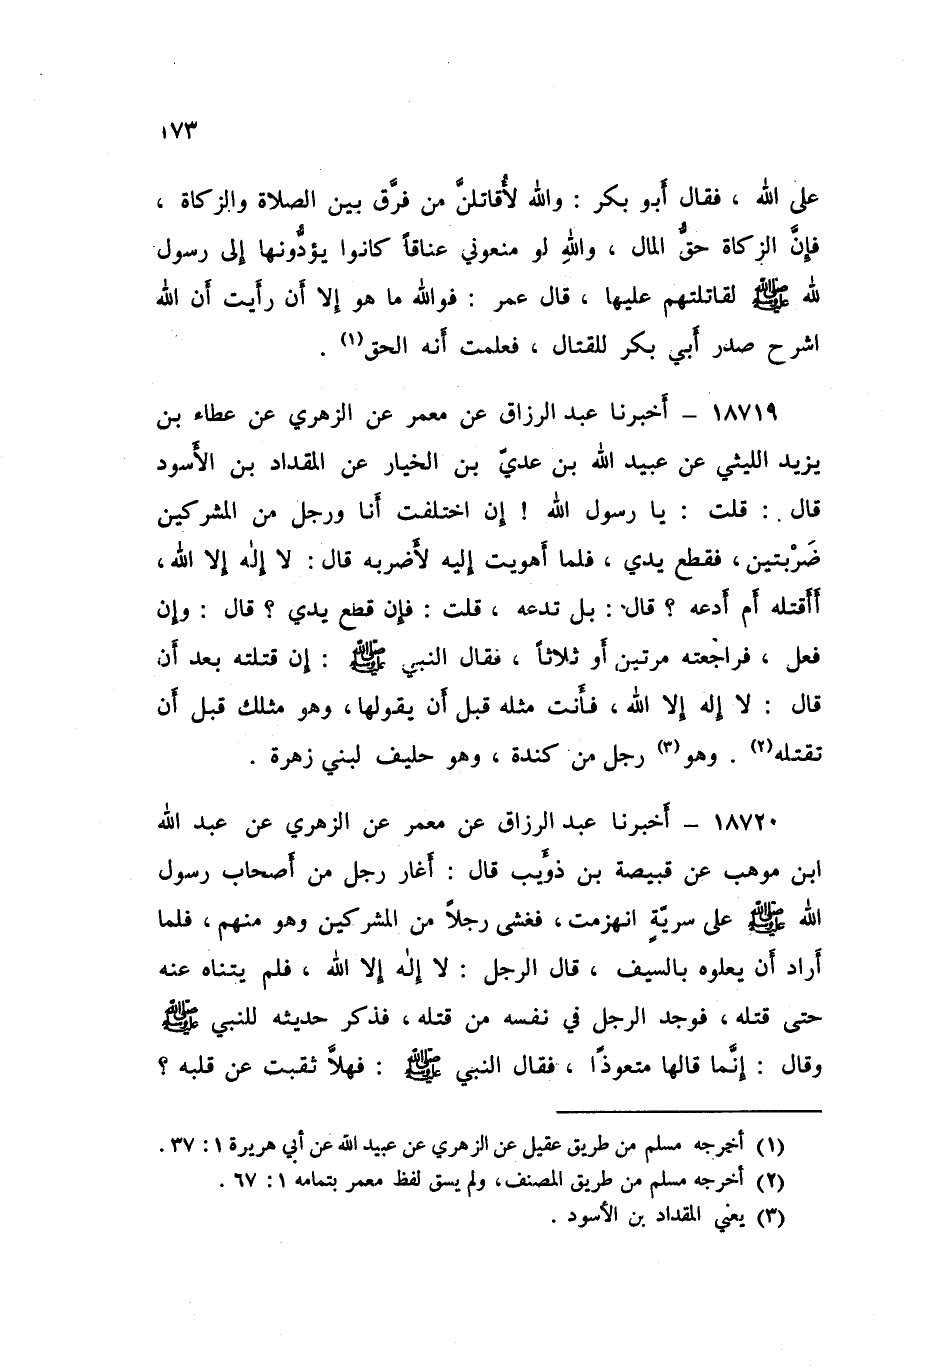 ١٧٣
على الله ، فقال أبو بكر : والله لأُقاتلنَّ من فرَّق بين الصلاة والزكاة ،
فإنَّ الزكاة حقُّ المال ، واللهِ لو منعوني عناقاً كانوا يؤدُّونها إلى رسول
لله ﷺ لقاتلتهم عليها ، قال عمر : فوالله ما هو إلا أن رأيت أن الله
اشرح صدر أبي بكر للقتال ، فعلمت أنه الحق(١) .
١٨٧١٩ – أخبرنا عبد الرزاق عن معمر عن الزهري عن عطاء بن
يزيد الليثي عن عبيد الله بن عديّ بن الخيار عن المقداد بن الأسود
قال : قلت : يا رسول الله ! إن اختلفت أنا ورجل من المشركين
ضَرْبتين ، فقطع يدي ، فلما أهويت إليه لأضربه قال : لا إلٰه إلا الله ،
أأقتله أم أدعه ؟ قال : بل تدعه ، قلت : فإن قطع يدي ؟ قال : وإن
فعل ، فراجعته مرتين أو ثلاثاً ، فقال النبي ﷺ : إن قتلته بعد أن
قال : لا إله إلا الله ، فأنت مثله قبل أن يقولها ، وهو مثلك قبل أن
تقتله(٢) . وهو(٣) رجل من كندة ، وهو حليف لبني زهرة .
١٨٧٢٠ – أخبرنا عبد الرزاق عن معمر عن الزهري عن عبد الله
ابن موهب عن قبيصة بن ذؤيب قال : أغار رجل من أصحاب رسول
الله ﷺ على سريّةٍ انهزمت ، فغشى رجلاً من المشركين وهو منهم ، فلما
أراد أن يعلوه بالسيف ، قال الرجل : لا إلٰه إلا الله ، فلم يتناه عنه
حتى قتله ، فوجد الرجل في نفسه من قتله ، فذكر حديثه للنبي ﷺ
وقال : إنَّما قالها متعوذًا ، فقال النبي ﷺ : فهلاَّ ثقبت عن قلبه ؟
(١) أخرجه مسلم من طريق عقيل عن الزهري عن عبيد الله عن أبي هريرة ١ : ٣٧ .
(٢) أخرجه مسلم من طريق المصنف ، ولم يسق لفظ معمر بتمامه ١ : ٦٧ .
(٣) يعني المقداد بن الأسود .